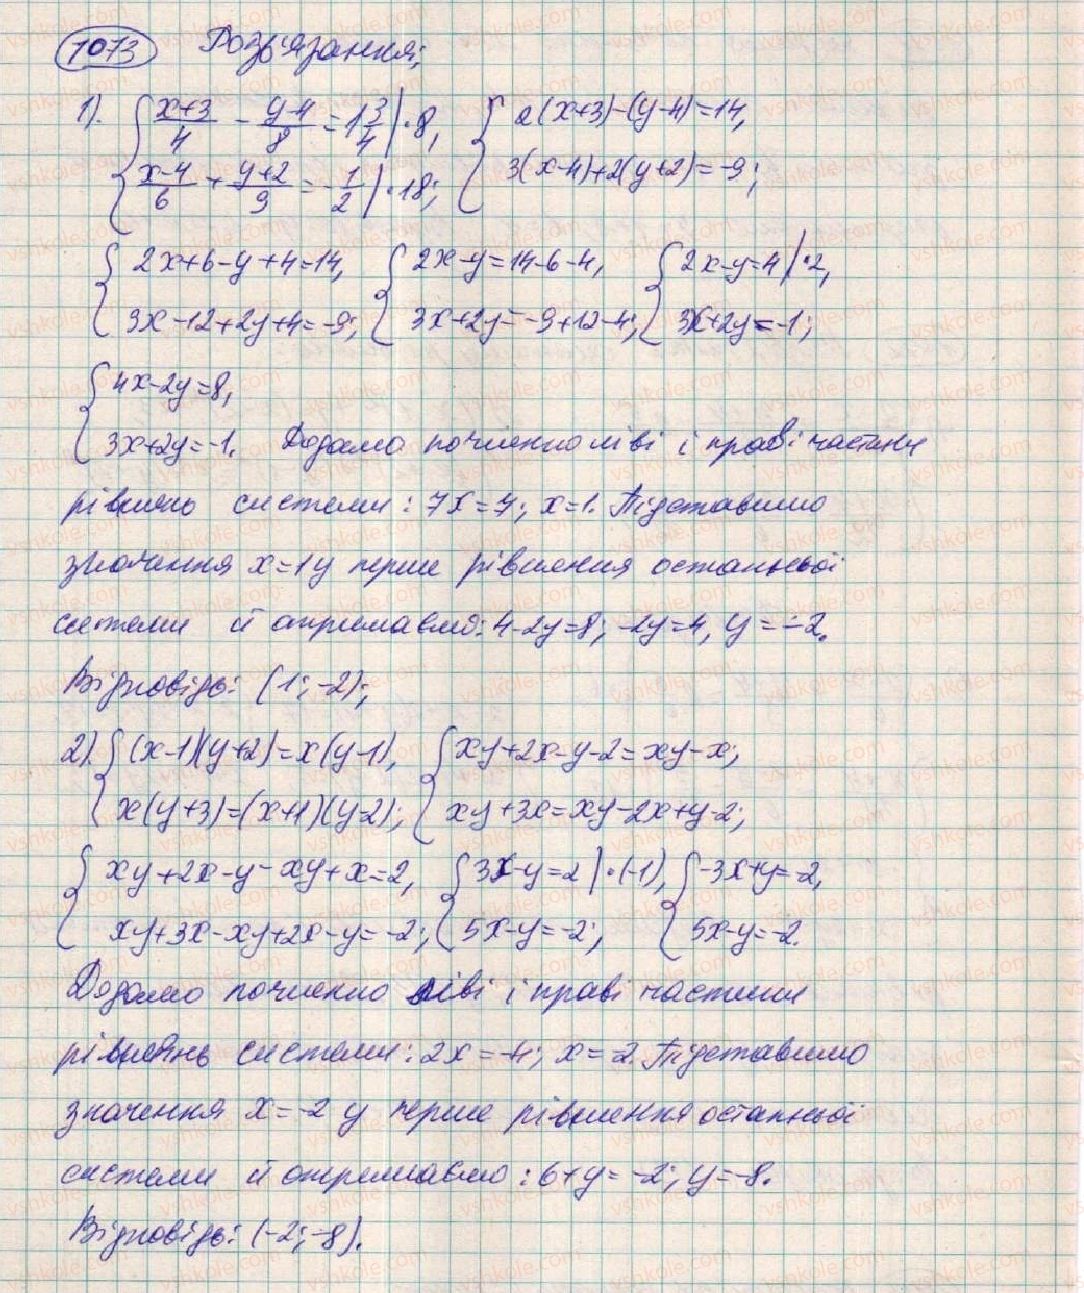 1073 Розв'язання:
1). { (x+3)/4 - (y-4)/8 = 1 3/4 |·8, { 2(x+3)-(y-4)=14,
(x-4)/6 + (y+2)/9 = -1/2 |·18; 3(x-4)+2(y+2)=-9;
{ 2x+6-y+4=14, { 2x-y=14-6-4, { 2x-y=4 |·2,
3x-12+2y+4=-9; 3x+2y=-9+12-4; 3x+2y=-1;
{ 4x-2y=8,
3x+2y=-1. Додамо почленно ліві і праві частини
рівнянь системи: 7x=7; x=1. Підставимо
значення x=1 у перше рівняння останньої
системи й отримаємо: 4-2y=8; -2y=4, y=-2.
Відповідь: (1; -2);
2). { (x-1)(y+2)=x(y-1), { xy+2x-y-2=xy-x;
x(y+3)=(x+1)(y-2); xy+3x=xy-2x+y-2;
{ xy+2x-y-xy+x=2, { 3x-y=2 |·(-1), { -3x+y=-2,
xy+3x-xy+2x-y=-2; 5x-y=-2; 5x-y=-2.
Додамо почленно ліві і праві частини
рівнянь системи: 2x=-4; x=-2. Підставимо
значення x=-2 у перше рівняння останньої
системи й отримаємо: 6+y=-2; y=-8.
Відповідь: (-2; -8).
vshkole.com